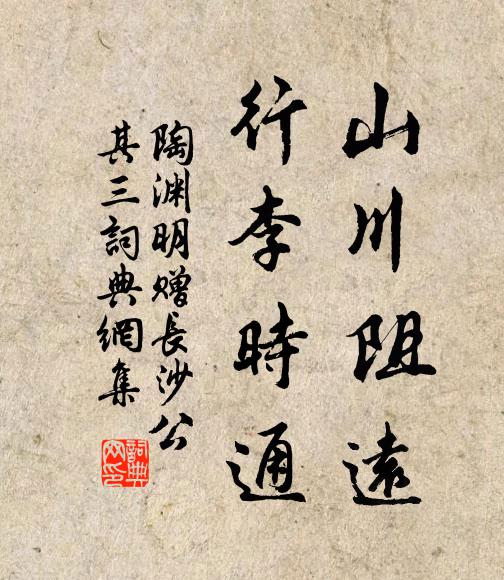 山川阻遠
行李時通
陶渊明赠長沙公
其三詞典網集
詞典
网印